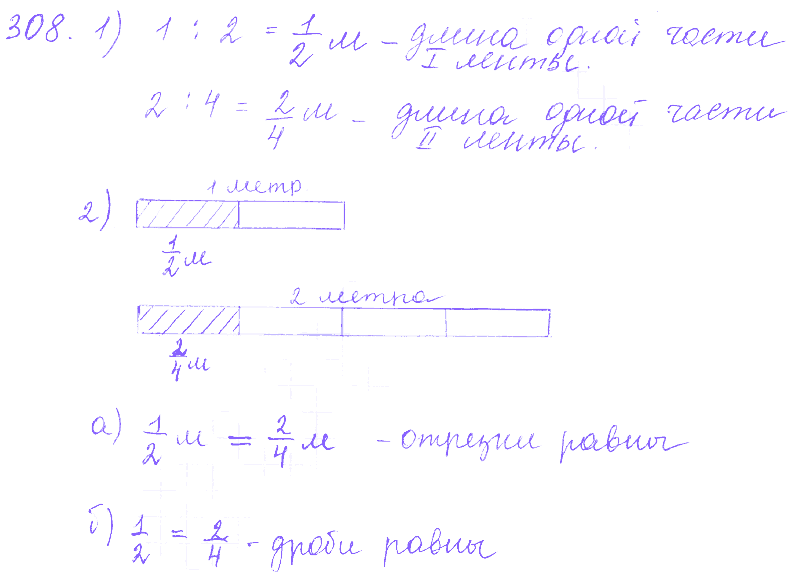 308. 1) 1 : 2 = 1/2 м – длина одной части
I ленты.
2 : 4 = 2/4 м – длина одной части
II ленты.
1 метр
2)
1/2 м
2 метра
2/4 м
а) 1/2 м = 2/4 м – отрезки равны
б) 1/2 = 2/4 – дроби равны